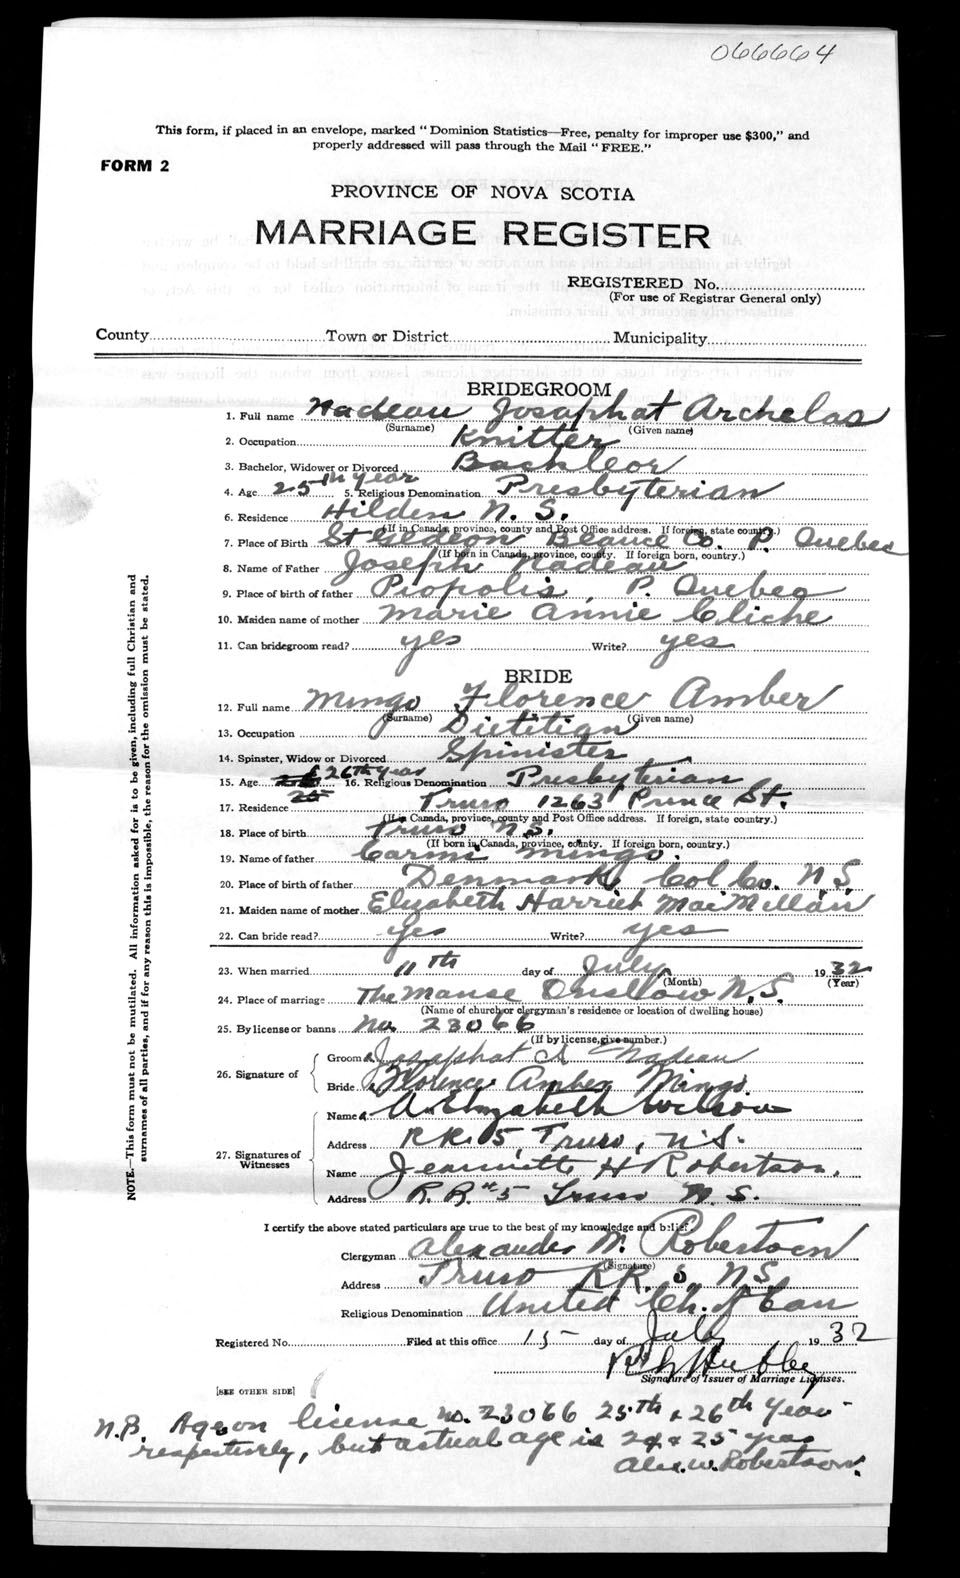 066664
This form, if placed in an envelope, marked "Dominion Statistics—Free, penalty for improper use $300," and
properly addressed will pass through the Mail "FREE."
FORM 2
PROVINCE OF NOVA SCOTIA
MARRIAGE REGISTER
REGISTERED No.
(For use of Registrar General only)
County Town or District Municipality
BRIDEGROOM
1. Full name Nadeau Josaphat Archelas
(Surname) (Given name)
2. Occupation Knitter
3. Bachelor, Widower or Divorced Bachleor
4. Age 25th year 5. Religious Denomination Presbyterian
6. Residence Hilden N. S.
(If in Canada, province, county and Post Office address. If foreign, state country.)
7. Place of Birth St Gedeon Beauce Co. P. Quebec
(If born in Canada, province, county. If foreign born, country.)
8. Name of Father Joseph Nadeau
9. Place of birth of father Piopolis, P. Quebec
10. Maiden name of mother Marie Annie Cliche
11. Can bridegroom read? yes Write? yes
BRIDE
12. Full name Mingo Florence Amber
(Surname) (Given name)
13. Occupation Dietitian
14. Spinster, Widow or Divorced Spinister
15. Age 26th year 16. Religious Denomination Presbyterian
25
17. Residence Truro 1263 Prince St.
(If in Canada, province, county and Post Office address. If foreign, state country.)
18. Place of birth Truro N.S.
(If born in Canada, province, county. If foreign born, country.)
19. Name of father Carmi Mingo.
20. Place of birth of father Denmark Col Co. N.S.
21. Maiden name of mother Elizabeth Harriet MacMillan
22. Can bride read? yes Write? yes
23. When married 11th day of July 1932
(Month) (Year)
24. Place of marriage The Manse Onslow N.S.
(Name of church or clergyman's residence or location of dwelling house)
25. By license or banns No. 23066
(If by license, give number.)
26. Signature of Groom Josaphat A Nadeau
Bride Florence Amber Mingo
27. Signatures of Witnesses Name A. Elizabeth Wilson
Address R.R. 5, Truro, N.S.
Name Jeannette H Robertson.
Address R.R. #5 Truro N.S.
I certify the above stated particulars are true to the best of my knowledge and belief.
Clergyman Alexander W. Robertson
(Signature)
Address Truro R.R. 5, N.S.
Religious Denomination United Ch. of Can
Registered No. Filed at this office 15 day of July 1932
Signature of Issuer of Marriage Licenses.
[SEE OTHER SIDE]
N.B. Age on license no. 23066 25th & 26th year
respectively, but actual age is 24 & 25 years
Alex. W. Robertson.
NOTE.—This form must not be mutilated. All information asked for is to be given, including full Christian and
surnames of all parties, and if for any reason this is impossible, the reason for the omission must be stated.